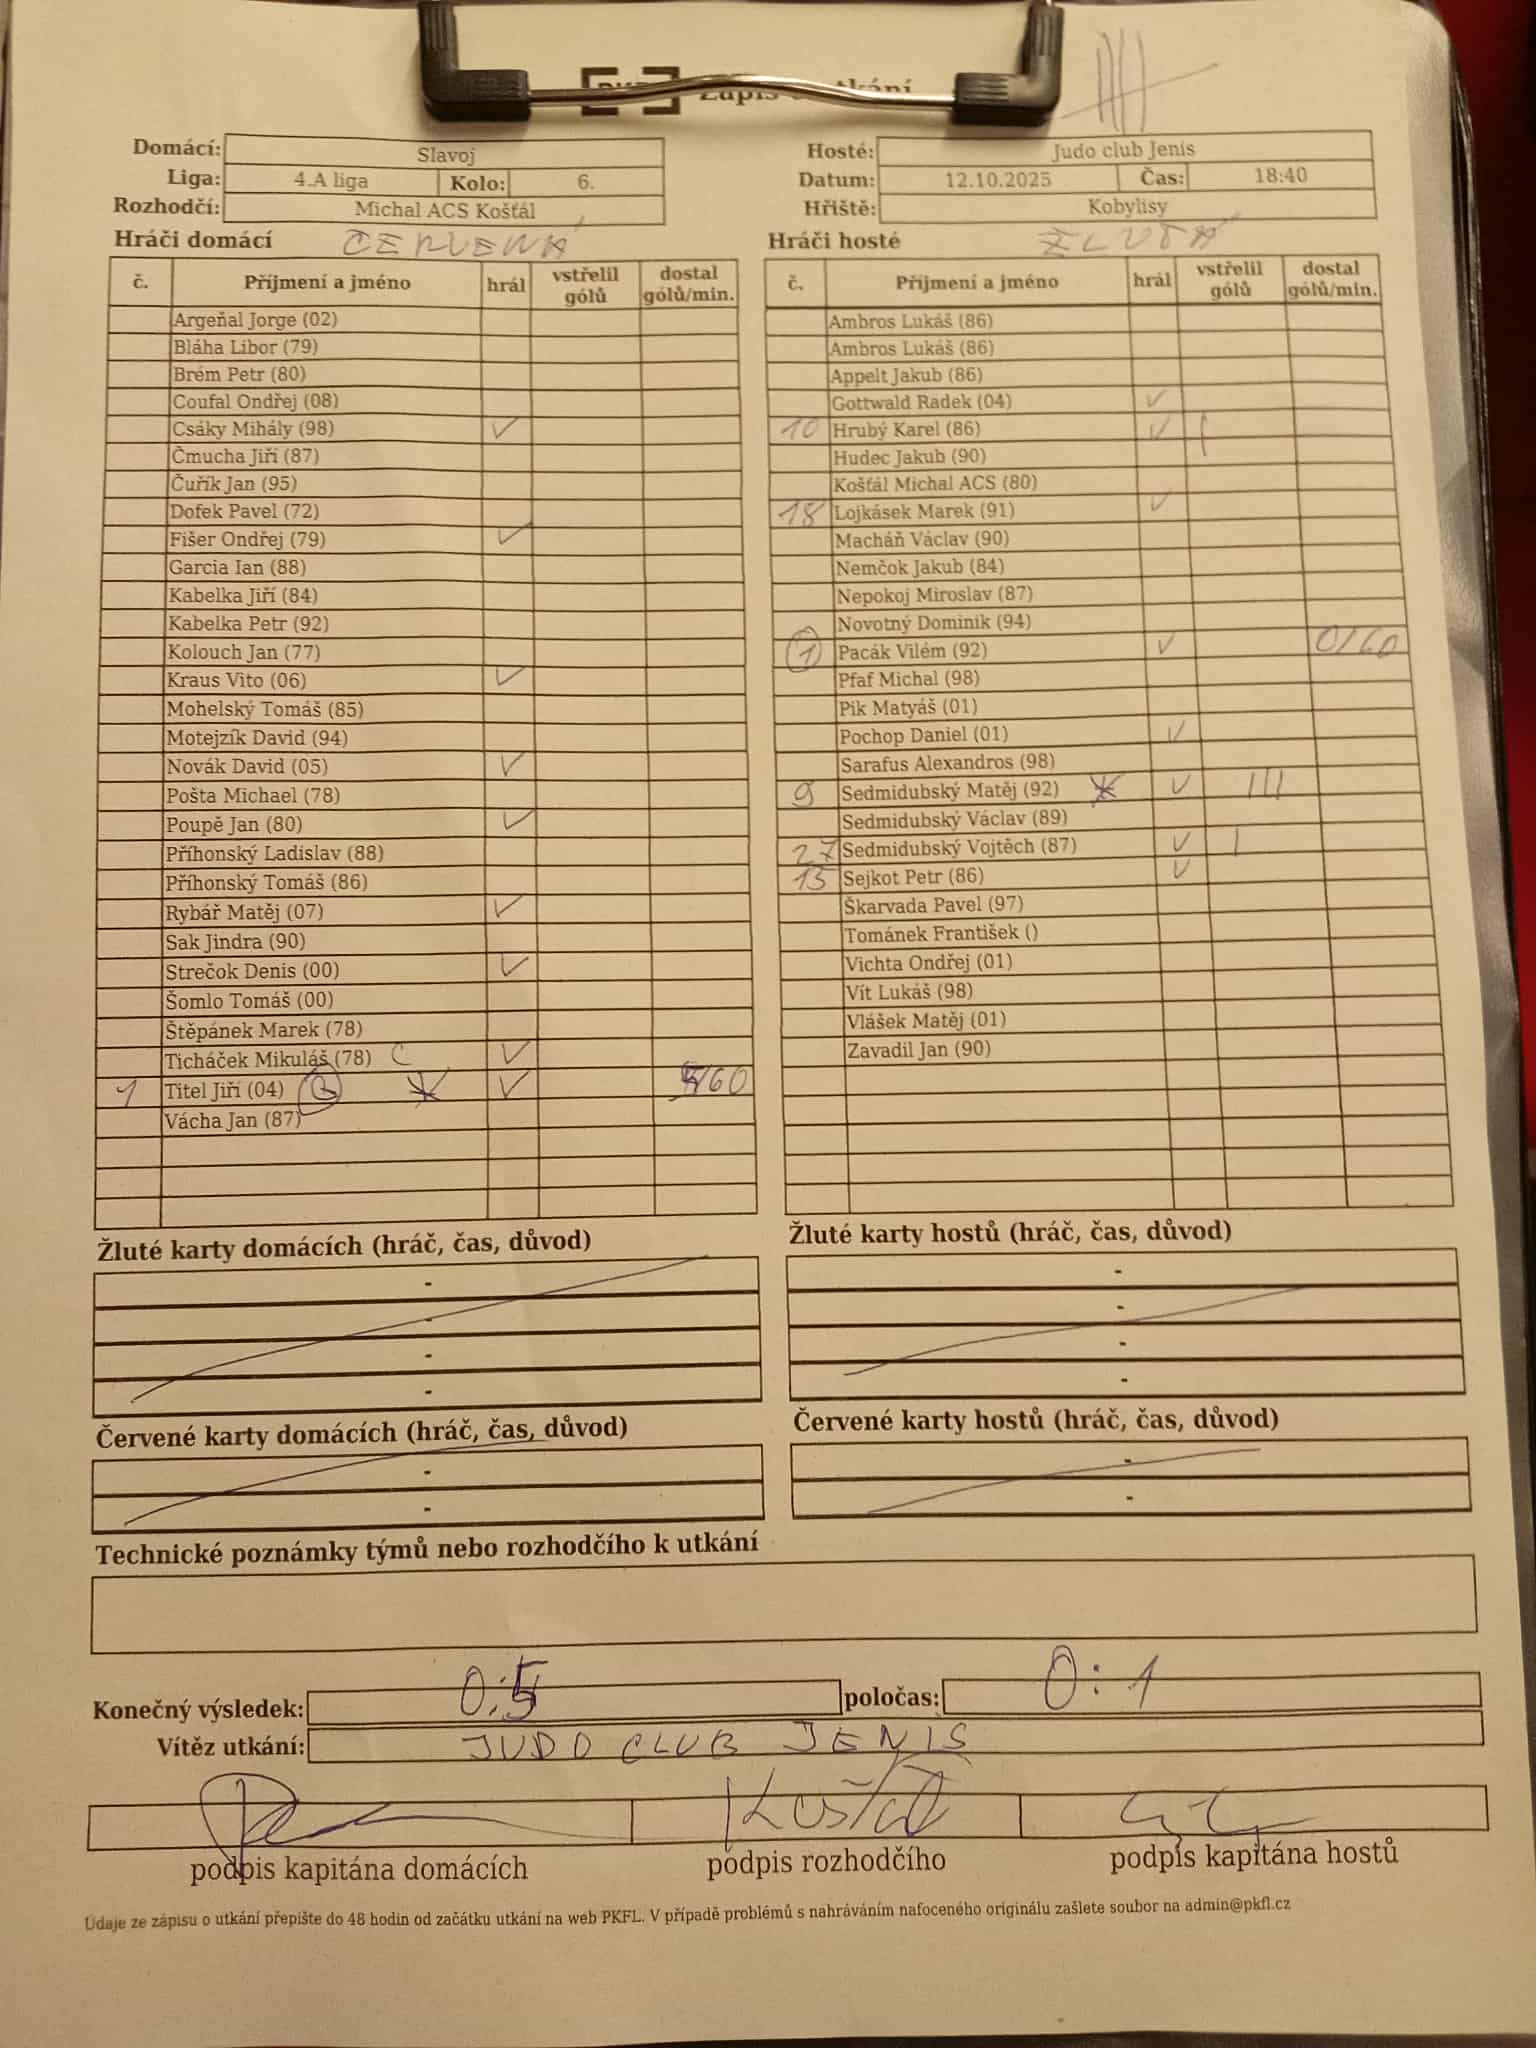 Zápis utkání
Domácí: Slavoj
Liga: 4.A liga Kolo: 6.
Rozhodčí: Michal ACS Košťál
Hosté: Judo club Jenis
Datum: 12.10.2025 Čas: 18:40
Hřiště: Kobylisy
Hráči domácí ČERVENÁ
č. Příjmení a jméno hrál vstřelil gólů dostal gólů/min.
Argeňal Jorge (02)
Bláha Libor (79)
Brém Petr (80)
Coufal Ondřej (08)
Csáky Mihály (98) ✓
Čmucha Jiří (87)
Čuřík Jan (95)
Dofek Pavel (72)
Fišer Ondřej (79) ✓
Garcia Ian (88)
Kabelka Jiří (84)
Kabelka Petr (92)
Kolouch Jan (77)
Kraus Vito (06) ✓
Mohelský Tomáš (85)
Motejzík David (94)
Novák David (05) ✓
Pošta Michael (78)
Poupě Jan (80) ✓
Příhonský Ladislav (88)
Příhonský Tomáš (86)
Rybář Matěj (07) ✓
Sak Jindra (90)
Strečok Denis (00) ✓
Šomlo Tomáš (00)
Štěpánek Marek (78)
Ticháček Mikuláš (78) C ✓
1 Titel Jiří (04) B * ✓ 5/60
Vácha Jan (87)
Hráči hosté ŽLUTÁ
č. Příjmení a jméno hrál vstřelil gólů dostal gólů/min.
Ambros Lukáš (86)
Ambros Lukáš (86)
Appelt Jakub (86)
Gottwald Radek (04) ✓
10 Hrubý Karel (86) ✓ I
Hudec Jakub (90)
Košťál Michal ACS (80)
18 Lojkásek Marek (91) ✓
Macháň Václav (90)
Nemčok Jakub (84)
Nepokoj Miroslav (87)
Novotný Dominik (94)
1 Pacák Vilém (92) ✓ 0/60
Pfaf Michal (98)
Pik Matyáš (01)
Pochop Daniel (01) ✓
Sarafus Alexandros (98)
9 Sedmidubský Matěj (92) * ✓ III
Sedmidubský Václav (89)
27 Sedmidubský Vojtěch (87) ✓ I
13 Sejkot Petr (86) ✓
Škarvada Pavel (97)
Tománek František ()
Vichta Ondřej (01)
Vít Lukáš (98)
Vlášek Matěj (01)
Zavadil Jan (90)
Žluté karty domácích (hráč, čas, důvod)
-
-
-
-
Žluté karty hostů (hráč, čas, důvod)
-
-
-
-
Červené karty domácích (hráč, čas, důvod)
-
-
Červené karty hostů (hráč, čas, důvod)
-
-
Technické poznámky týmů nebo rozhodčího k utkání
Konečný výsledek: 0:5 poločas: 0:1
Vítěz utkání: JUDO CLUB JENIS
Košťál
podpis kapitána domácích podpis rozhodčího podpis kapitána hostů
Údaje ze zápisu o utkání přepište do 48 hodin od začátku utkání na web PKFL. V případě problémů s nahráváním nafoceného originálu zašlete soubor na admin@pkfl.cz